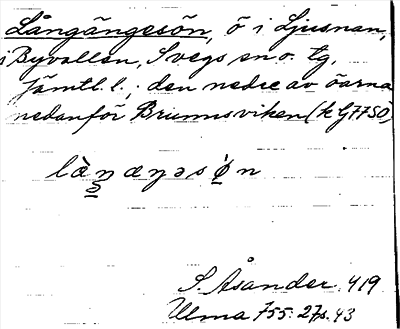 Långängesön, ö i Ljusnan,
i Byvallen, Svegs sn o. tg,
Jämtl. l., den nedre av öarna
nedanför Brunnsviken (k G 77 SÖ)
S. Åsander 419
Ulma 755:27 s. 43